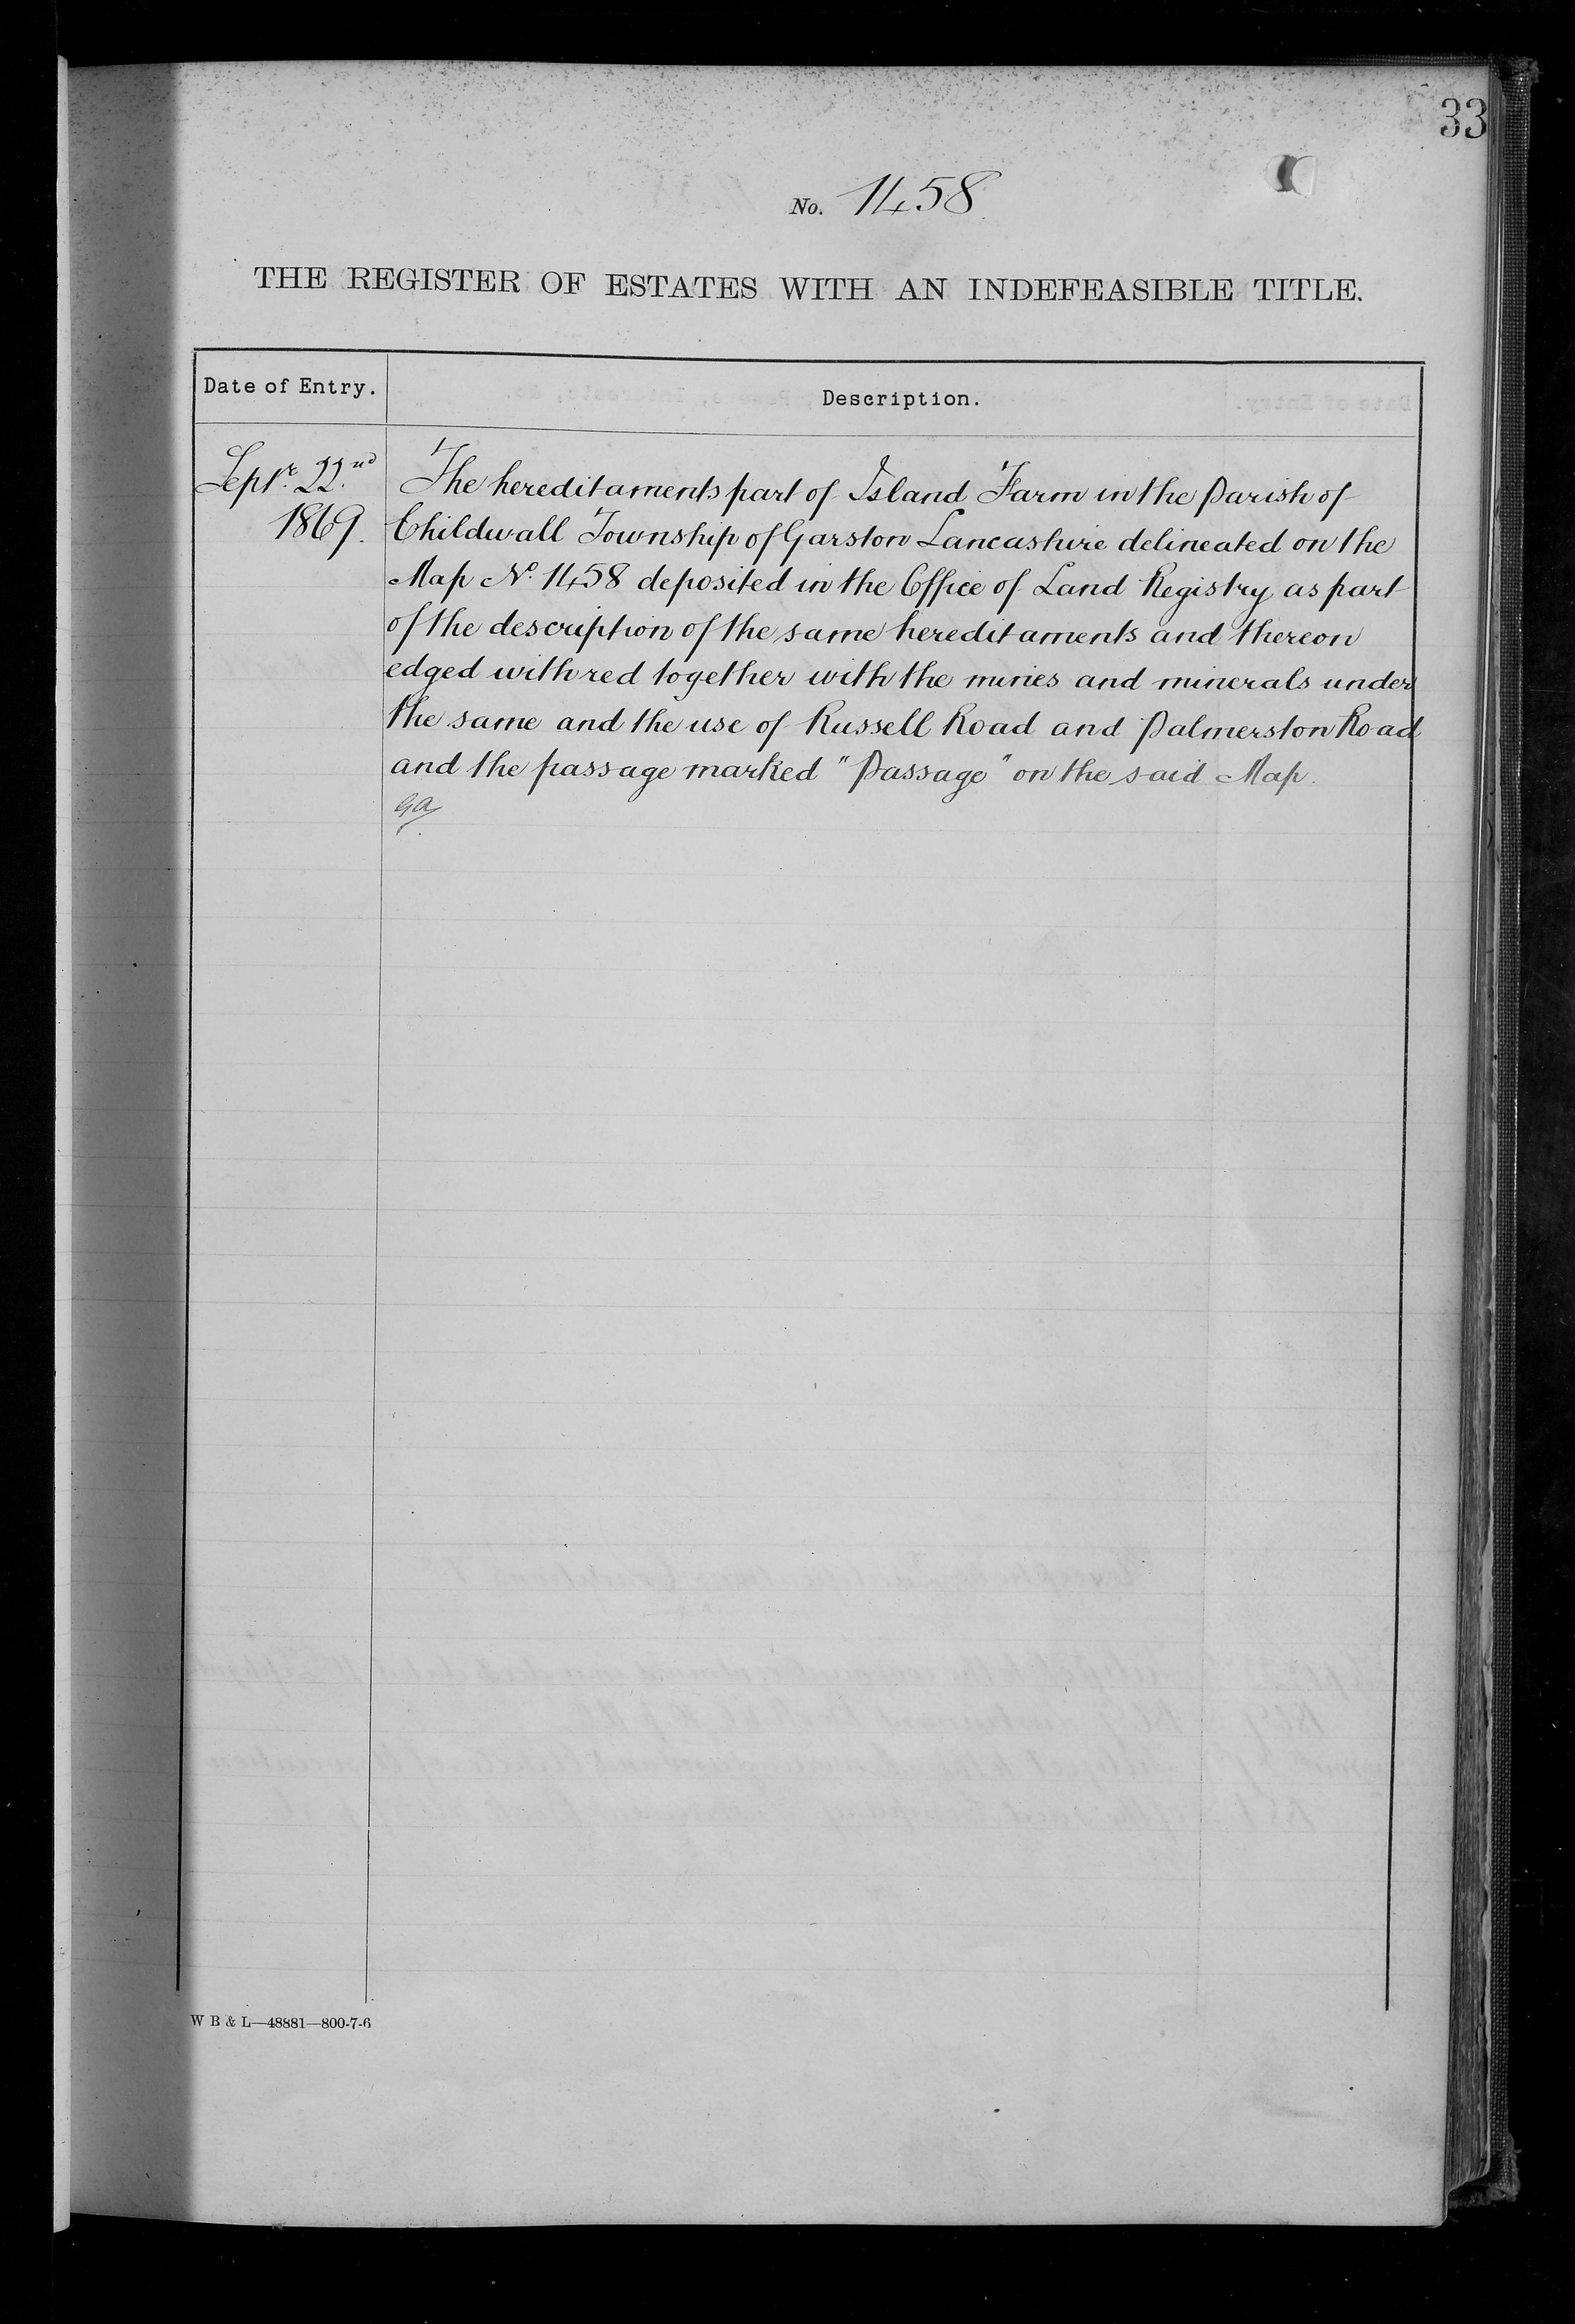 33
No. 1458
THE REGISTER OF ESTATES WITH AN INDEFEASIBLE TITLE.
Date of Entry. Description.
Septr. 22nd The hereditaments part of Island Farm in the Parish of
1869. Childwall Township of Garston Lancashire delineated on the
Map No. 1458 deposited in the Office of Land Registry as part
of the description of the same hereditaments and thereon
edged with red together with the mines and minerals under
the same and the use of Russell Road and Palmerston Road
and the passage marked "Passage" on the said Map.
W B & L—48881—800-7-6